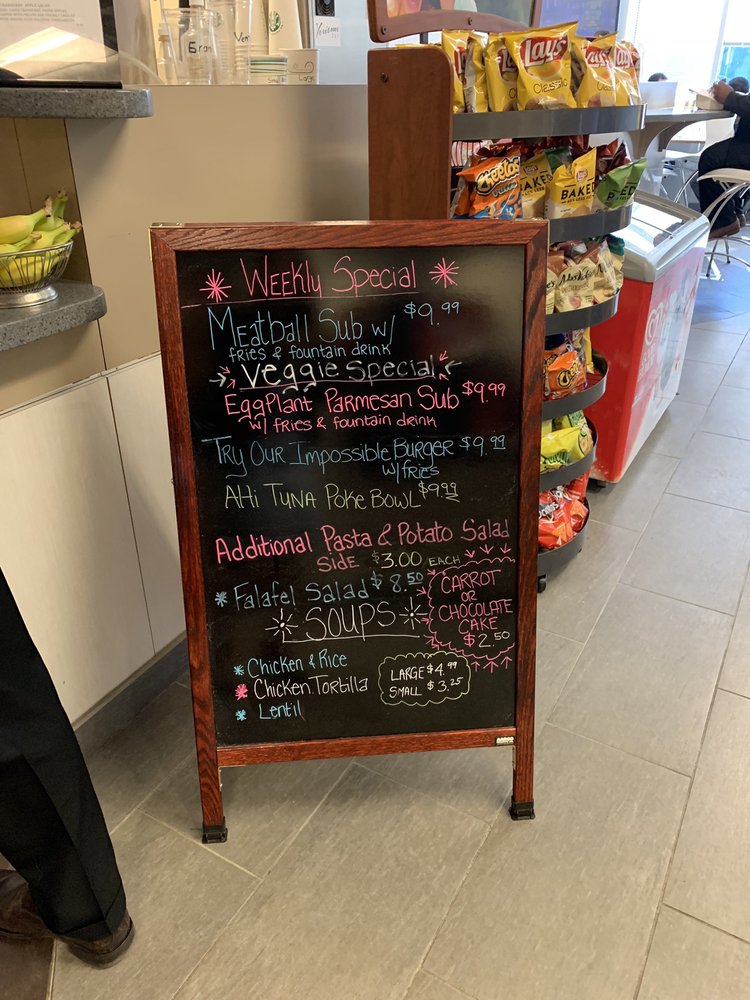 Lay's
Classic
Cheetos
BAKED
BAKED
Large
Weekly Special
Meatball Sub w/ $9.99
fries & fountain drink
Veggie Special
EggPlant Parmesan Sub $9.99
w/ fries & fountain drink
Try Our Impossible Burger $9.99
w/fries
AHi Tuna Poke Bowl $9.99
Additional Pasta & Potato Salad
Side $3.00 each
* Falafel Salad $8.50
CARROT
OR
CHOCOLATE
CAKE
$2.50
SOUPS
* Chicken & Rice
* Chicken Tortilla
* Lentil
LARGE $4.99
SMALL $3.25